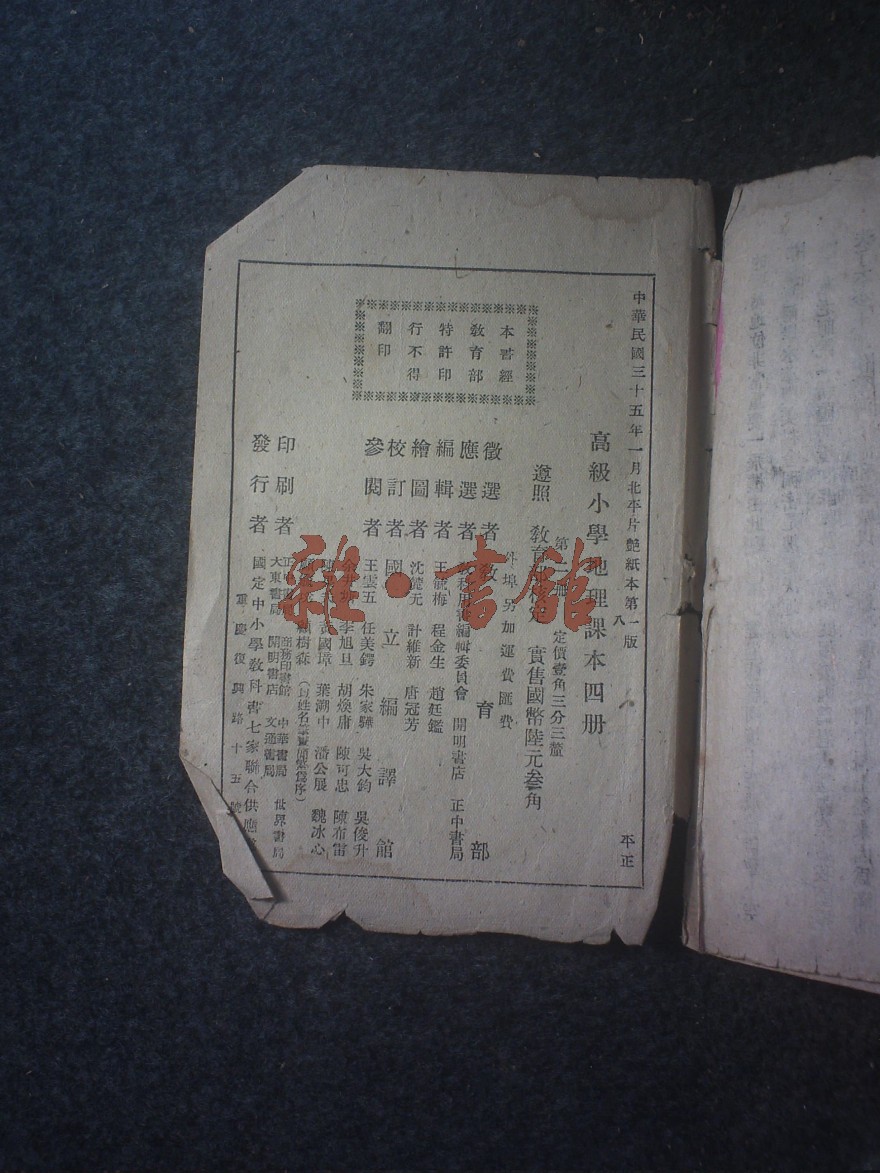 中華民國三十五年一月北平片艶紙本第一版
八
高級小學地理課本四册
第
册
定價壹角三分三釐
遵照
敎育部
定
實售國幣陸元叁角
外埠另加運費匯費
本書經
敎育部
特許印
行不得
翻印
徵選者 敎育部
應選者
編輯委員會 開明書店 正中書局
編輯者 王毓梅 程金生 趙廷鑑
繪圖者 沈麓元 計維新 唐冠芳
校訂者 國立編譯館
參閱者 王雲五 任美鍔 朱家驊 吳大鈞 吳俊升
李旭旦 胡煥庸 陳可忠 陳布雷
葉溯中 潘公展 魏冰心
樹森
印刷者 正中書局 商務印書館 中華書局 世界書局
大東書局 開明書店 文通書局
發行者 國定中小學敎科書七家聯合供應
重慶復興路十五號
平正
雜·書館